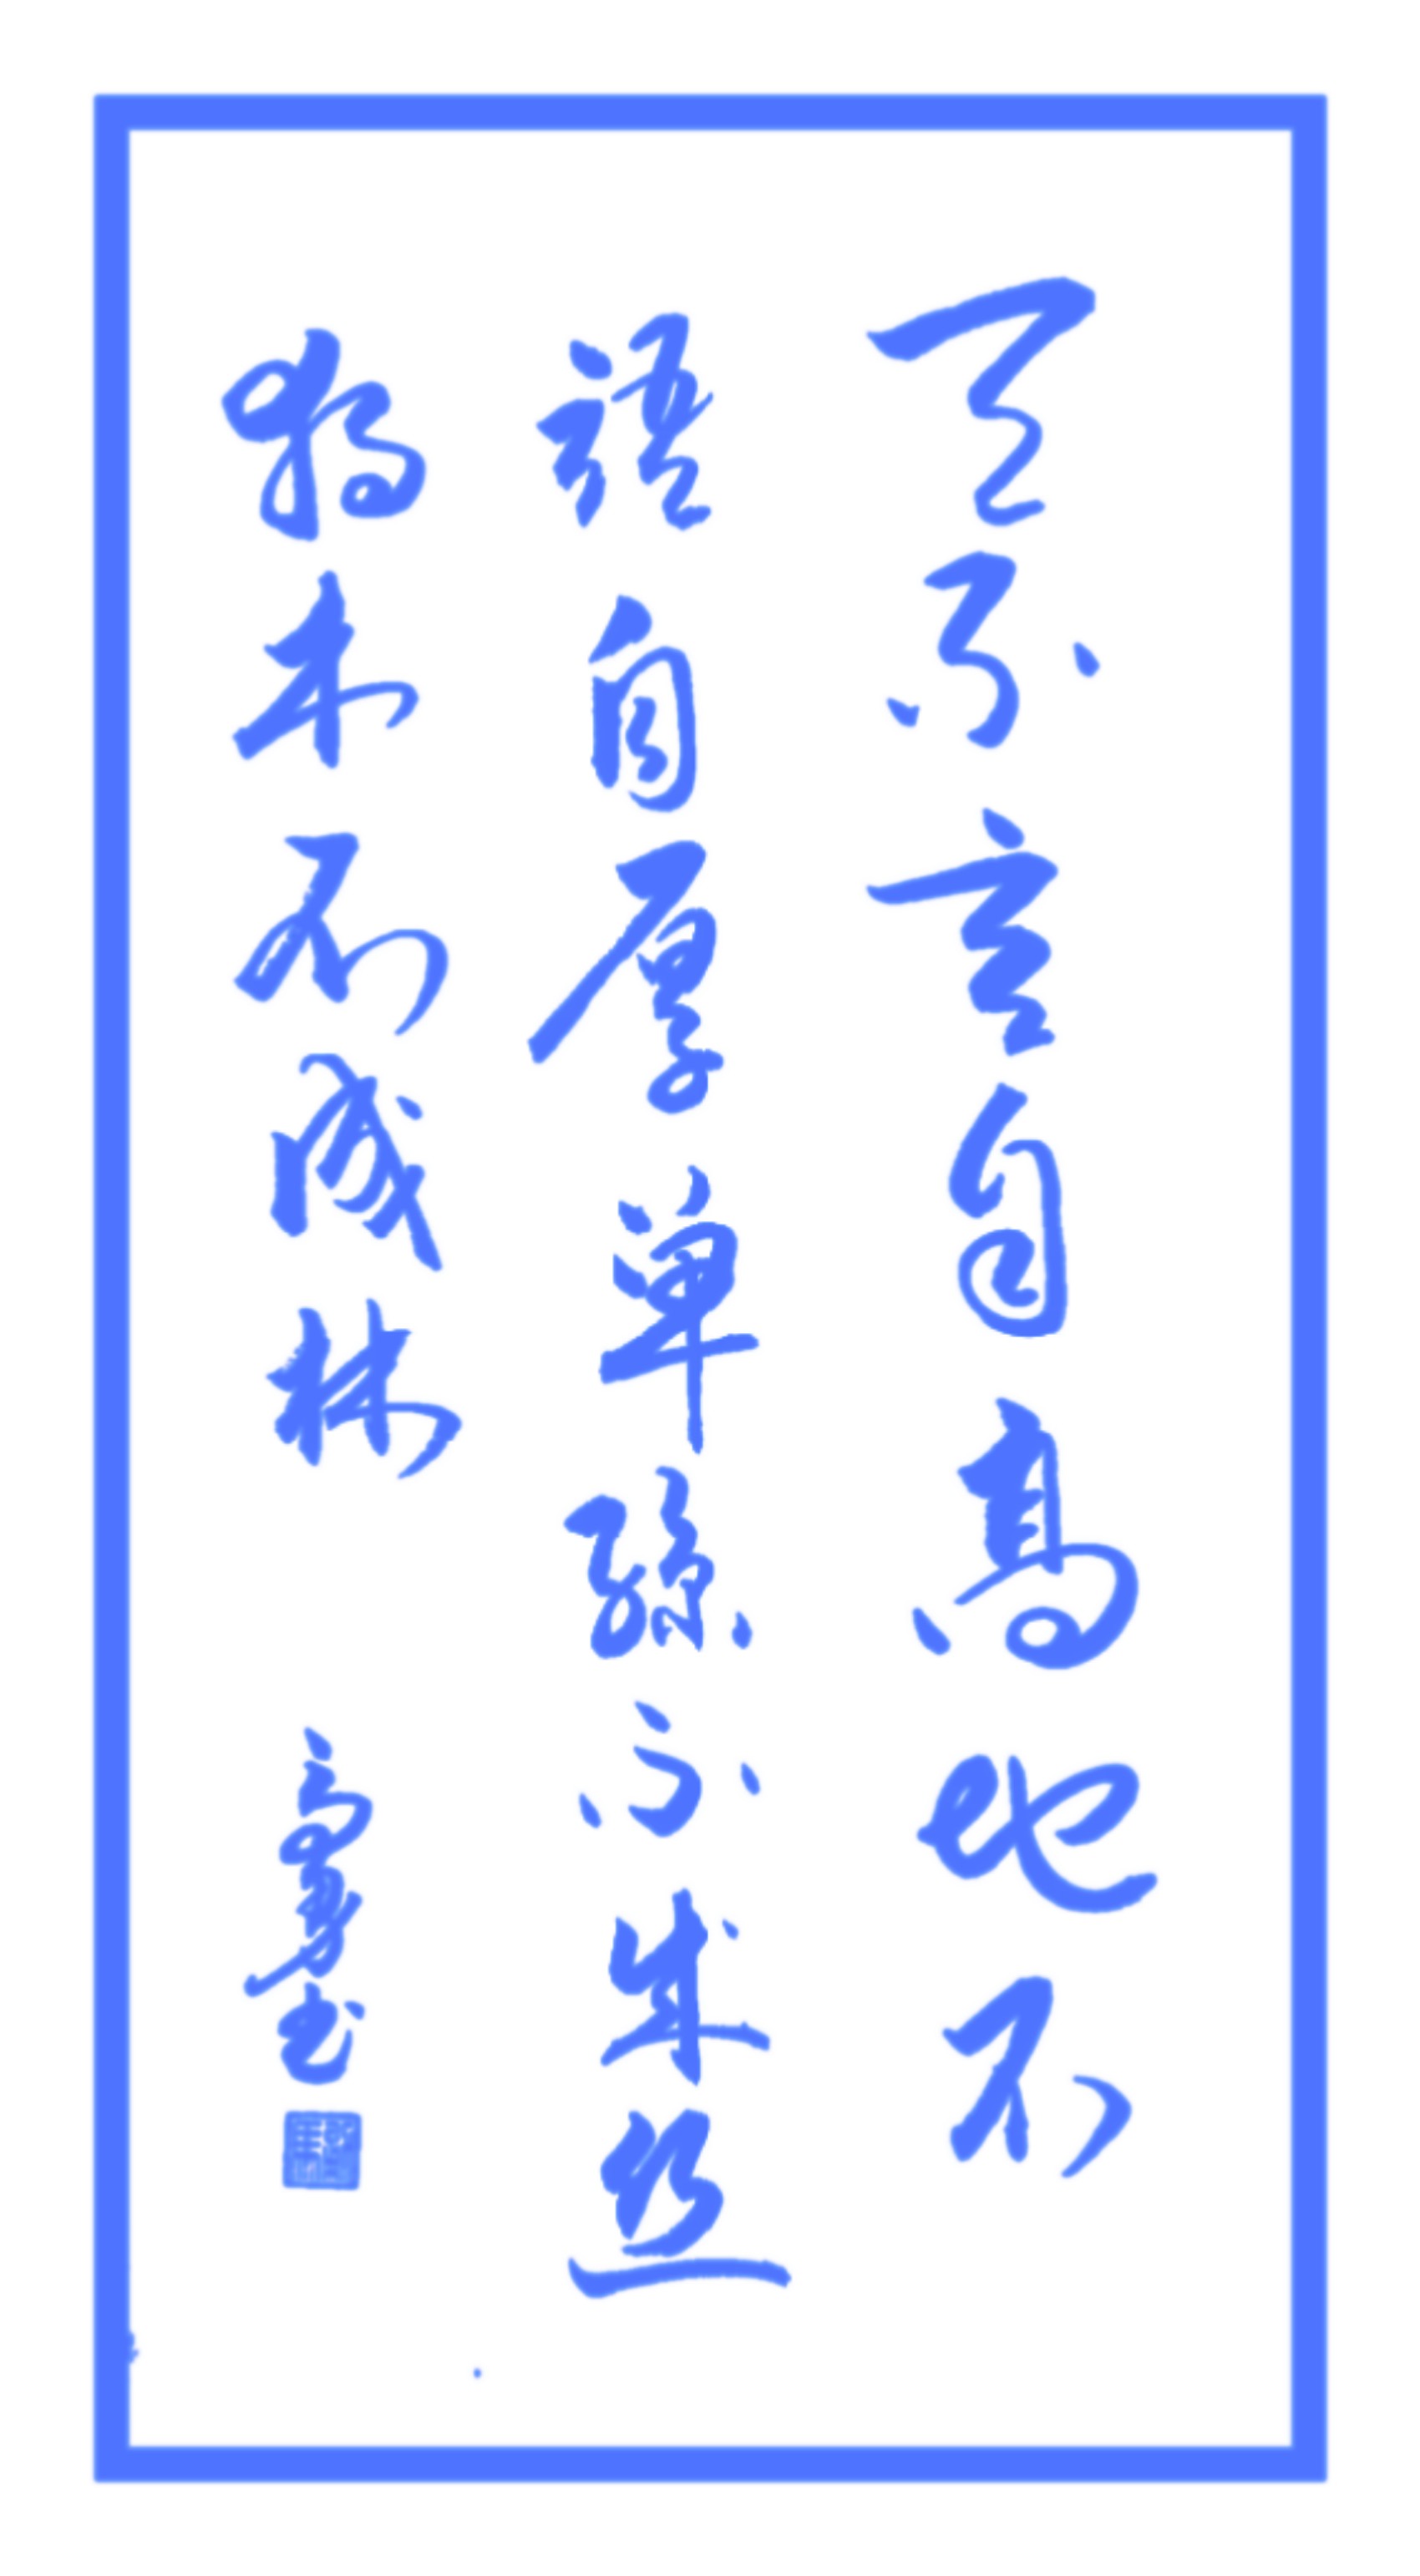 天不言自高地不
語自厚單絲不成丝
獨木不成林